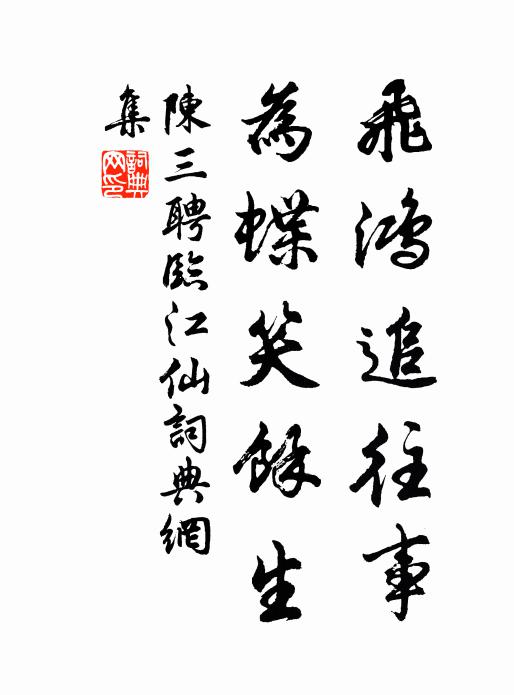 飛鴻追往事
為蝶笑餘生
陳三聘臨江仙詞典網
集
詞典网印